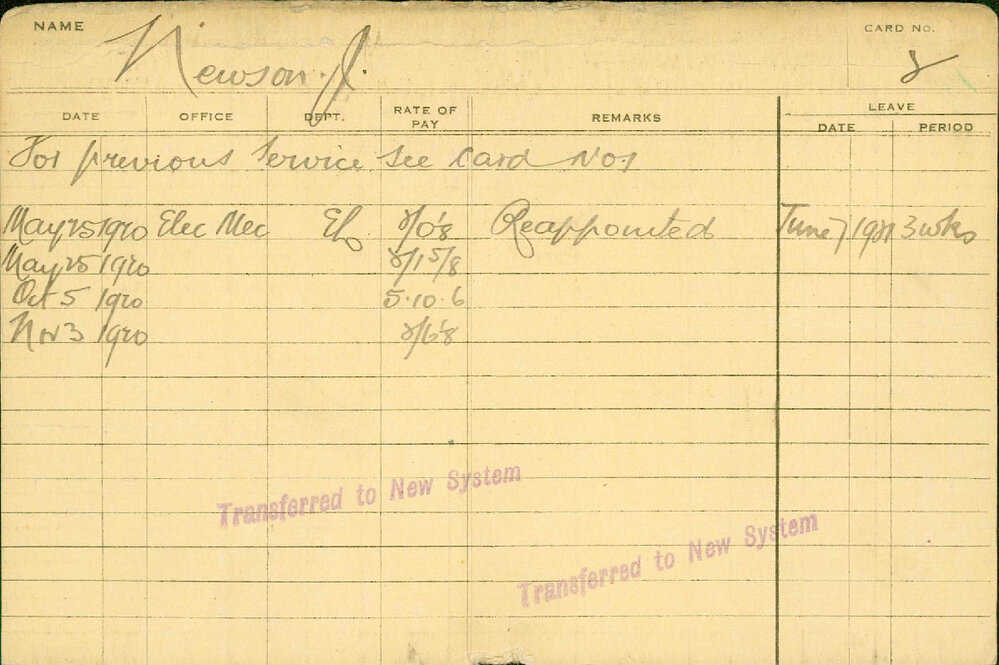 NAME Newson. J. CARD NO. 2
DATE OFFICE DEPT. RATE OF PAY REMARKS LEAVE
DATE PERIOD
For previous Service See Card No 1
May 25 1920 Elec Mec Reappointed June 7 1921 3 wks
May 25 1920
Oct 5 1920 5.10.6
Nov 3 1920
Transferred to New System
Transferred to New System